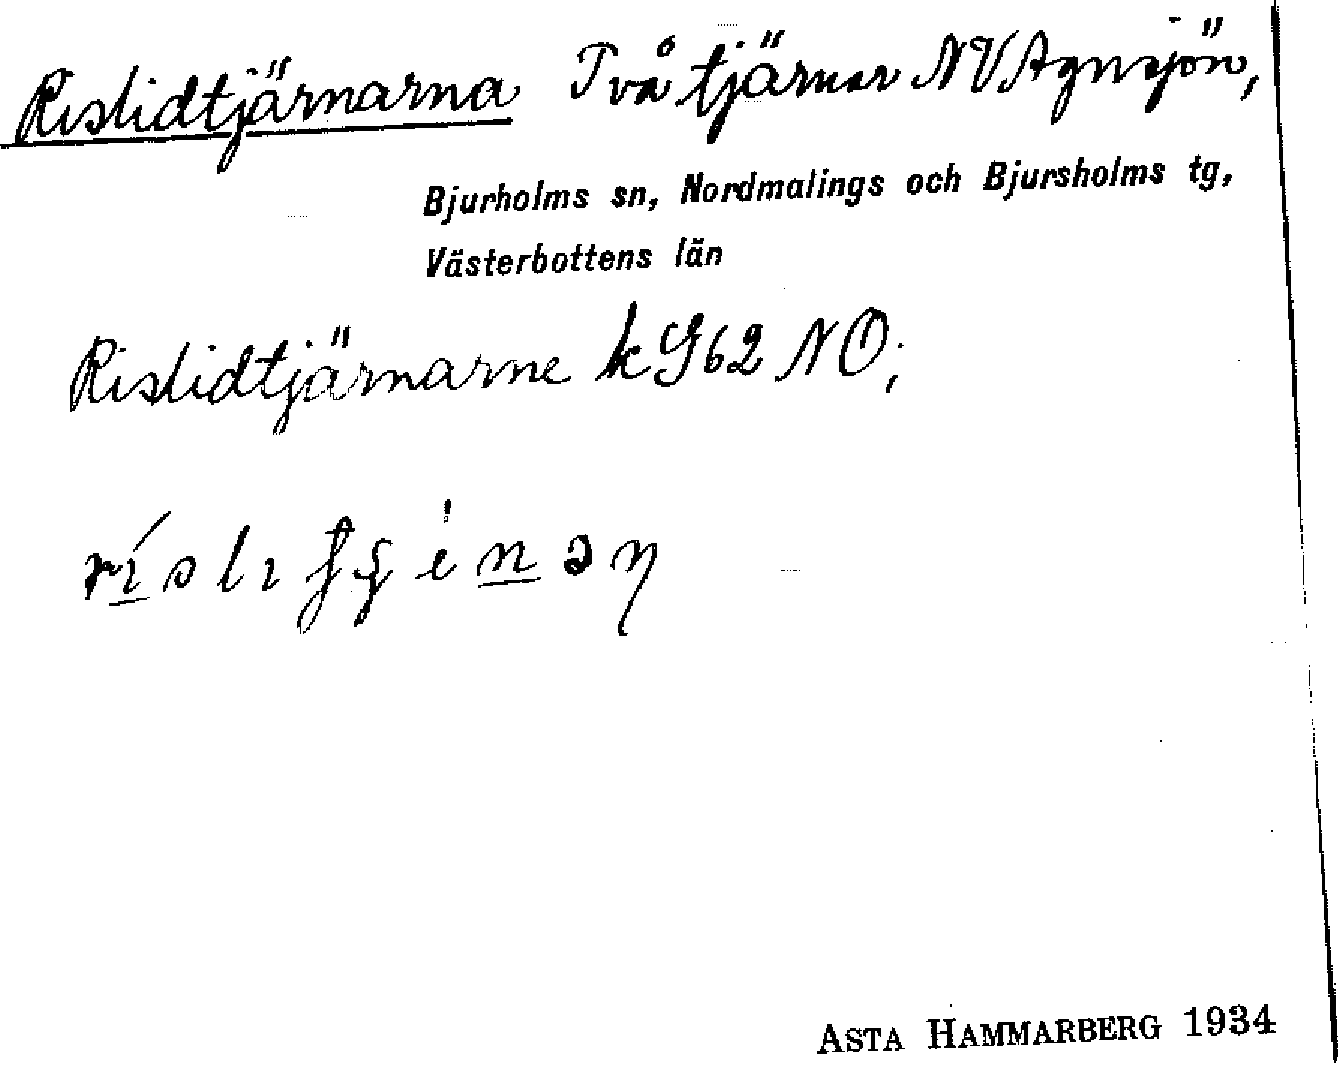 Rislidtjärnarna Två tjärnar NV Agnsjön,
Bjurholms sn, Nordmalings och Bjursholms tg,
Västerbottens län
Rislidtjärnarne kG62 NO;
ASTA HAMMARBERG 1934